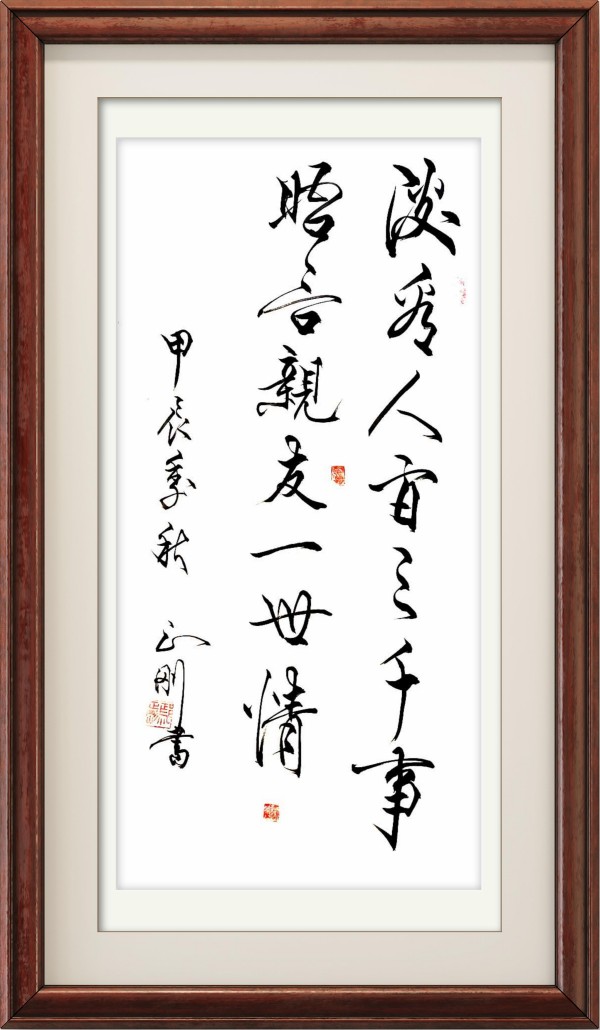 淡看人間三千事
晤言親友一世情
甲辰季秋 正剛書